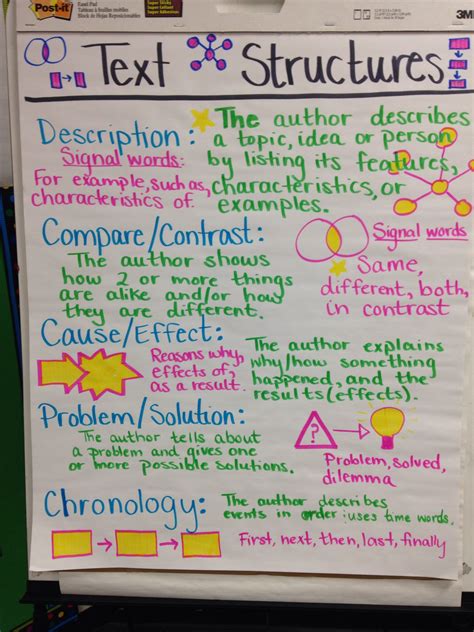 Post-it
Easel Pad
Tableau à feuilles mobiles
Block de Hojas Reposicionables
Super Sticky
3M
Text Structures
Description:
The author describes
a topic, idea or person
by listing its features,
characteristics, or
examples.
Signal words:
For example, such as,
characteristics of.
Compare/Contrast:
The author shows
how 2 or more things
are alike and/or how
they are different.
Signal words
Same,
different, both,
in contrast
Cause/Effect:
Reasons why,
effects of,
as a result.
The author explains
why/how something
happened, and the
results (effects).
Problem/Solution:
The author tells about
a problem and gives one
or more possible solutions.
?
Problem, solved,
dilemma
Chronology:
The author describes
events in order: uses time words.
First, next, then, last, finally